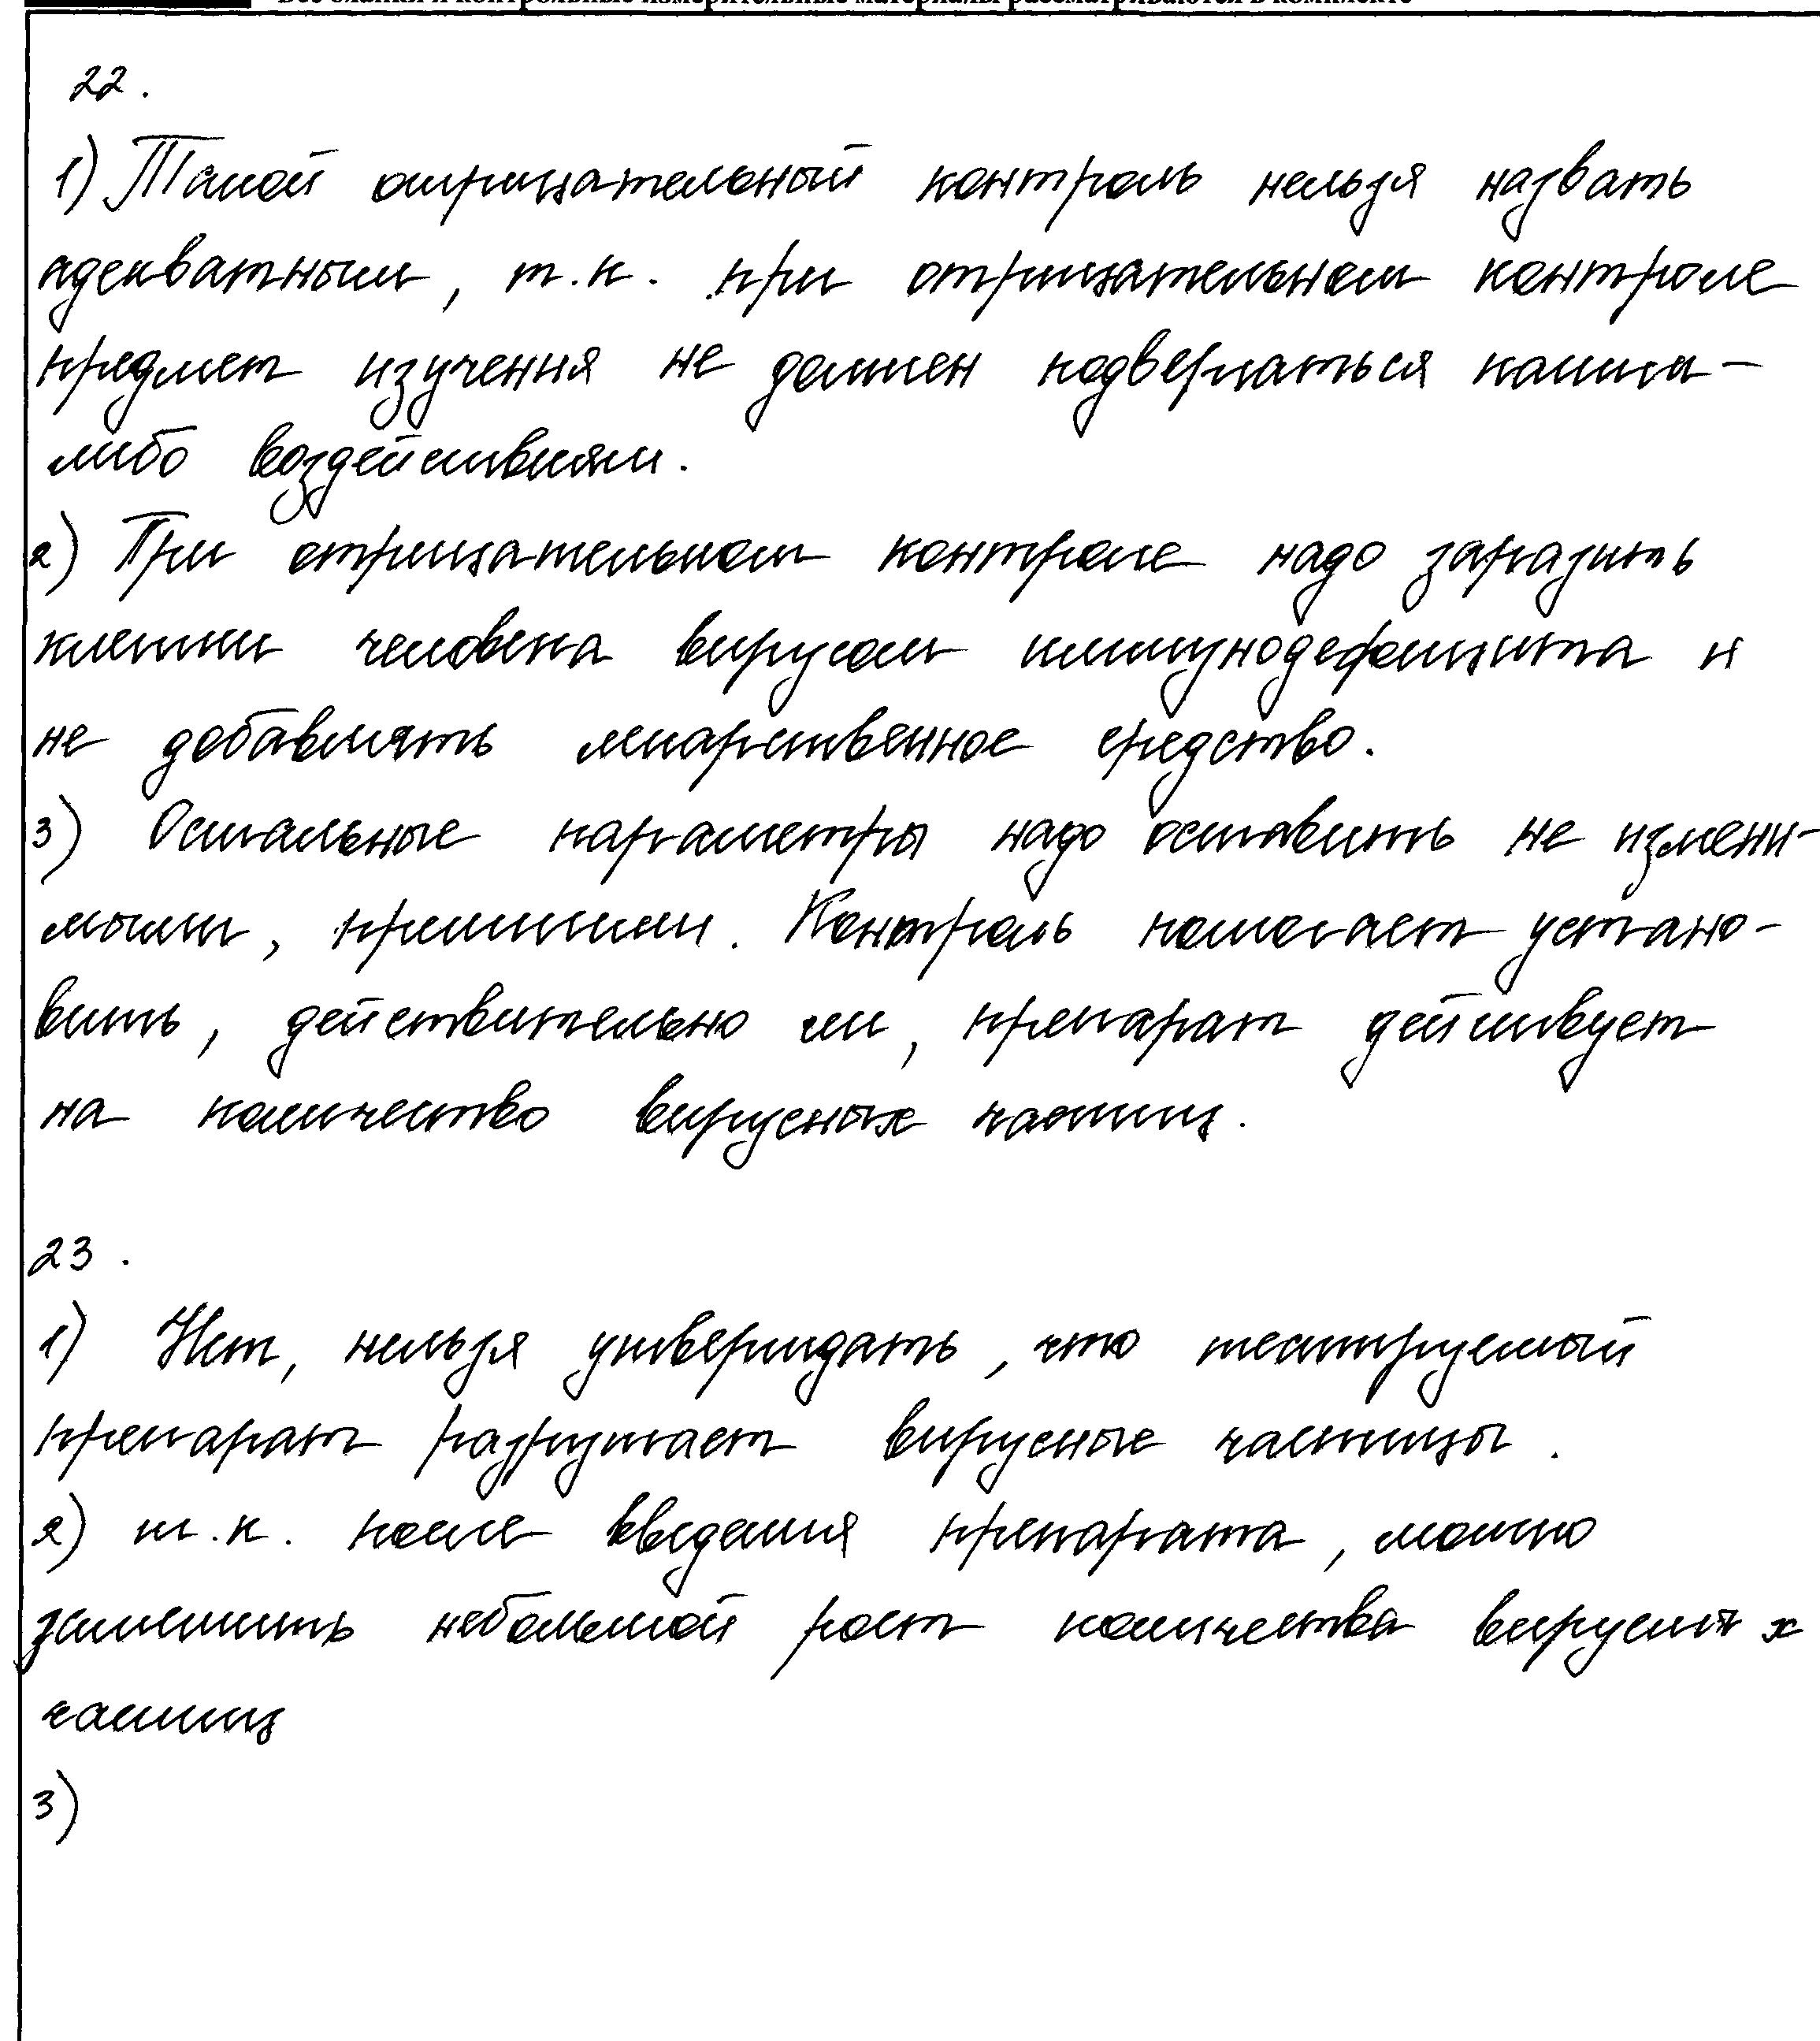 Все бланки и контрольные измерительные материалы рассматриваются в комплекте
22.
1) Такой отрицательный контроль нельзя назвать
адекватным, т.к. при отрицательном контроле
предмет изучения не должен подвергаться каким-
либо воздействиям.
2) При отрицательном контроле надо заразить
клетки человека вирусом иммунодефицита и
не добавлять лекарственное средство.
3) Остальные параметры надо оставить не измени-
мыми, прежними. Контроль помогает устано-
вить, действительно ли, препарат действует
на количество вирусных частиц.
23.
1) Нет, нельзя утверждать, что тестируемый
препарат разрушает вирусные частицы.
2) т.к. после введения препарата, можно
заметить небольшой рост количества вирусных
частиц
3)